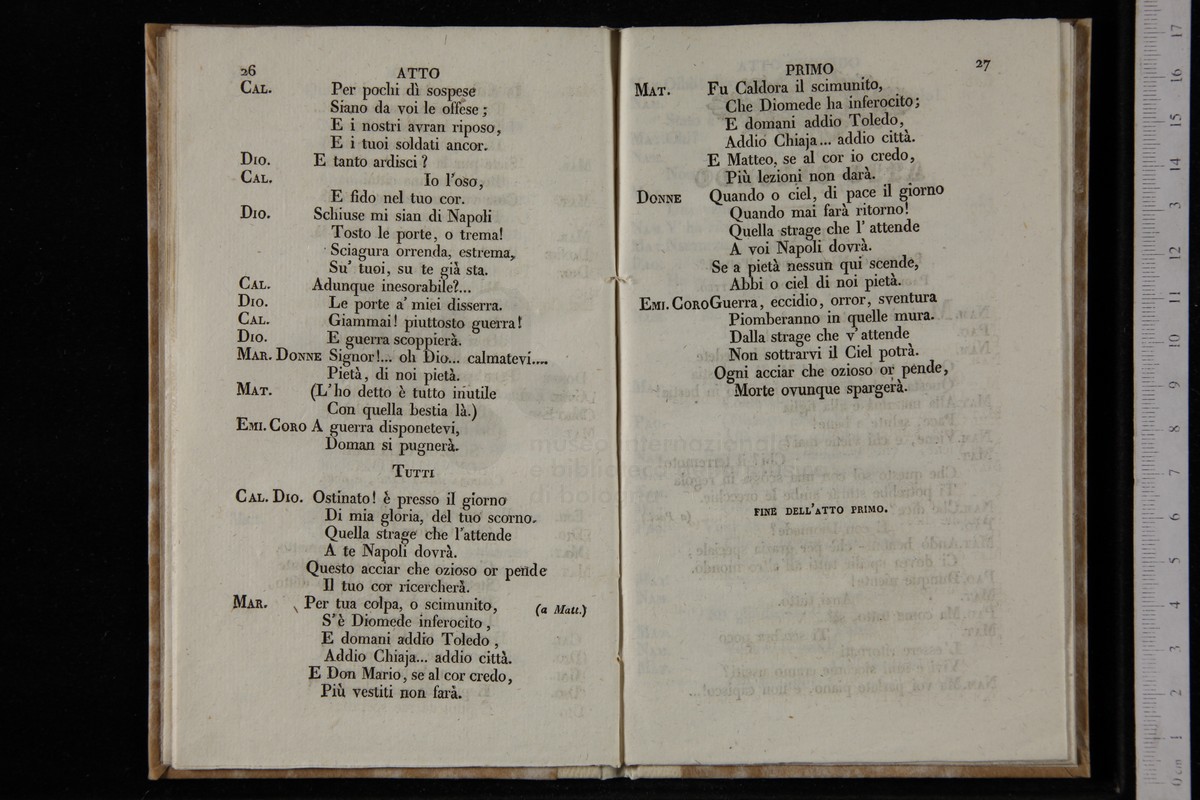 26
ATTO
CAL. Per pochi dì sospese
Siano da voi le offese;
E i nostri avran riposo,
E i tuoi soldati ancor.
DIO. E tanto ardisci?
CAL. Io l'oso,
E fido nel tuo cor.
DIO. Schiuse mi sian di Napoli
Tosto le porte, o trema!
Sciagura orrenda, estrema,
Su' tuoi, su te già sta.
CAL. Adunque inesorabile?...
DIO. Le porte a' miei disserra.
CAL. Giammai! piuttosto guerra!
DIO. E guerra scoppierà.
MAR. DONNE Signor!... oh Dio... calmatevi....
Pietà, di noi pietà.
MAT. (L'ho detto è tutto inutile
Con quella bestia là.)
EMI. CORO A guerra disponetevi,
Doman si pugnerà.
TUTTI
CAL. DIO. Ostinato! è presso il giorno
Di mia gloria, del tuo scorno.
Quella strage che l'attende
A te Napoli dovrà.
Questo acciar che ozioso or pende
Il tuo cor ricercherà.
MAR. Per tua colpa, o scimunito, (a Matt.)
S'è Diomede inferocito,
E domani addio Toledo,
Addio Chiaja... addio città.
E Don Mario, se al cor credo,
Più vestiti non farà.
PRIMO
27
MAT. Fu Caldora il scimunito,
Che Diomede ha inferocito;
E domani addio Toledo,
Addio Chiaja... addio città.
E Matteo, se al cor io credo,
Più lezioni non darà.
DONNE Quando o ciel, di pace il giorno
Quando mai farà ritorno!
Quella strage che l'attende
A voi Napoli dovrà.
Se a pietà nessun qui scende,
Abbi o ciel di noi pietà.
EMI. CORO Guerra, eccidio, orror, sventura
Piomberanno in quelle mura.
Dalla strage che v'attende
Non sottrarvi il Ciel potrà.
Ogni acciar che ozioso or pende,
Morte ovunque spargerà.
FINE DELL'ATTO PRIMO.
museo internazionale
e biblioteca della musica
di bologna